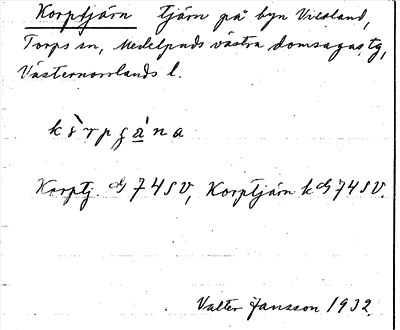 Korptjärn tjärn på byn Vikland,
Torps sn, Medelpads västra domsagas tg,
Västernorrlands l.
Korptj. G 74 SV, Korptjärn k G 74 SV.
Valter Jansson 1932.